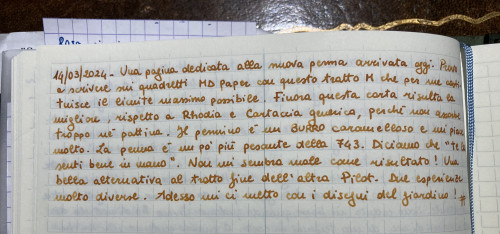 14/03/2024 - Una pagina dedicata alla nuova penna arrivata oggi. Provo
a scrivere sui quadretti MD Paper con questo tratto M che per me costi
tuisce il limite massimo possibile. Finora questa carta risulta la
migliore, rispetto a Rhodia e Cartaccia generica, perché non assorbe
troppo né pattina. Il pennino è un BURRO caramelloso e mi piace
molto. La penna è un po' più pesante della 743. Diciamo che "te la
senti bene in mano". Non mi sembra male come risultato! Una
bella alternativa al tratto fine dell'altra Pilot. Due esperienze
molto diverse. Adesso mi ci metto con i disegni del giardino!